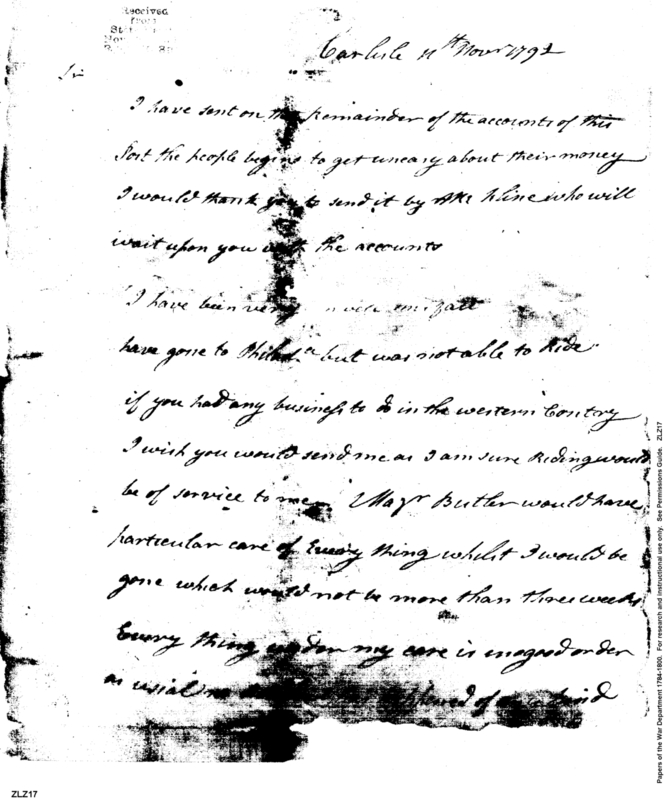 Received
from
Carlisle 11th Novr 1792
Sir
I have sent on the remainder of the accounts of this
Post the people begins to get uneasy about their money
I would thank you to send it by Kline who will
wait upon you with the accounts
I have been very
have gone to Philada but was not able to Ride
if you had any business to do in the western Contry
I wish you would send me as I am sure Riding would
be of service to me Mayr Butler would have
particular care of Every thing whilst I would be
gone which would not be more than three weeks
Every thing under my care is in good order
as usial of kind
Papers of the War Department 1784-1800. For research and instructional use only. See Permissions Guide. ZLZ17
ZLZ17